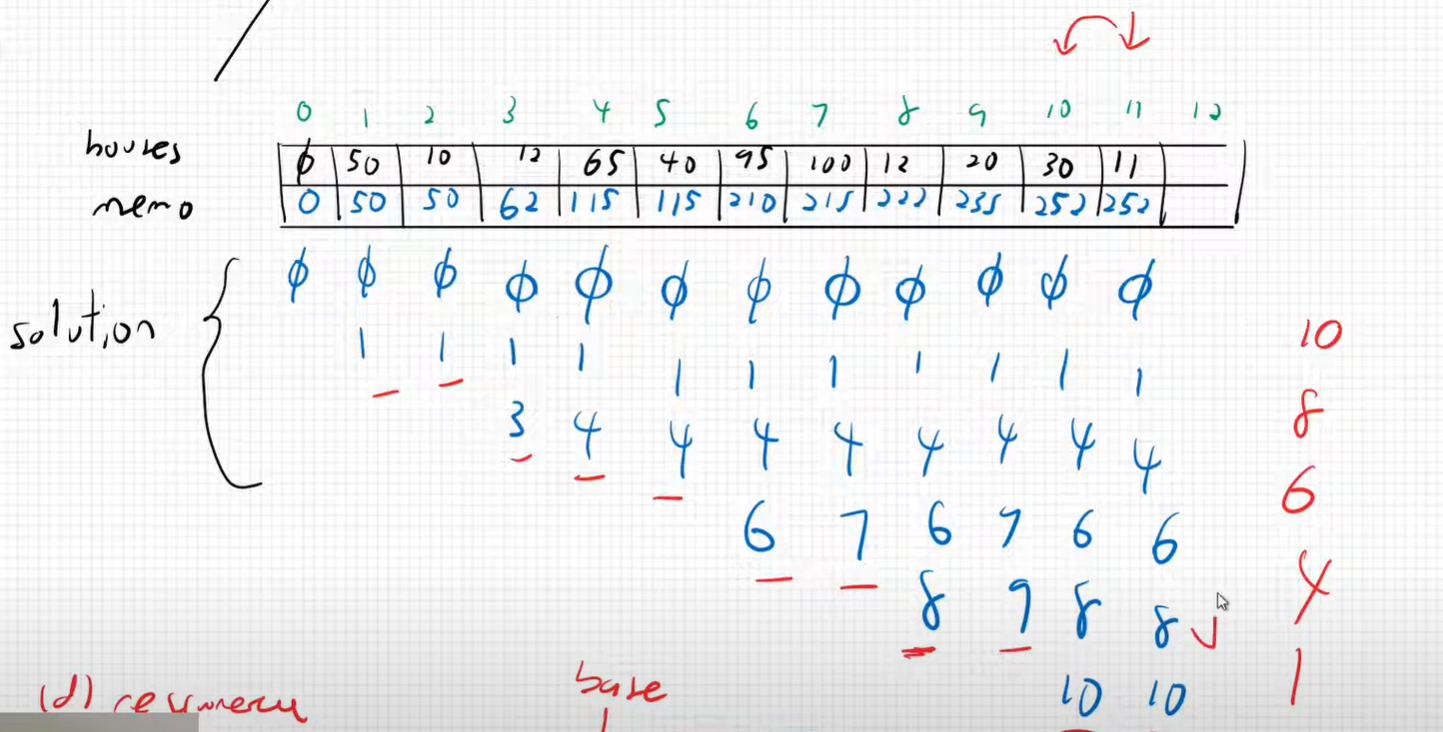 0 1 2 3 4 5 6 7 8 9 10 11 12
houses ϕ 50 10 12 65 40 95 100 12 20 30 11
memo 0 50 50 62 115 115 210 215 222 235 252 252
solution { ϕ ϕ ϕ ϕ ϕ ϕ ϕ ϕ ϕ ϕ ϕ ϕ
1 1 1 1 1 1 1 1 1 1 1 10
3 4 4 4 4 4 4 4 4 8
6 7 6 7 6 6 6
8 9 8 8 4
10 10 1
(d) base